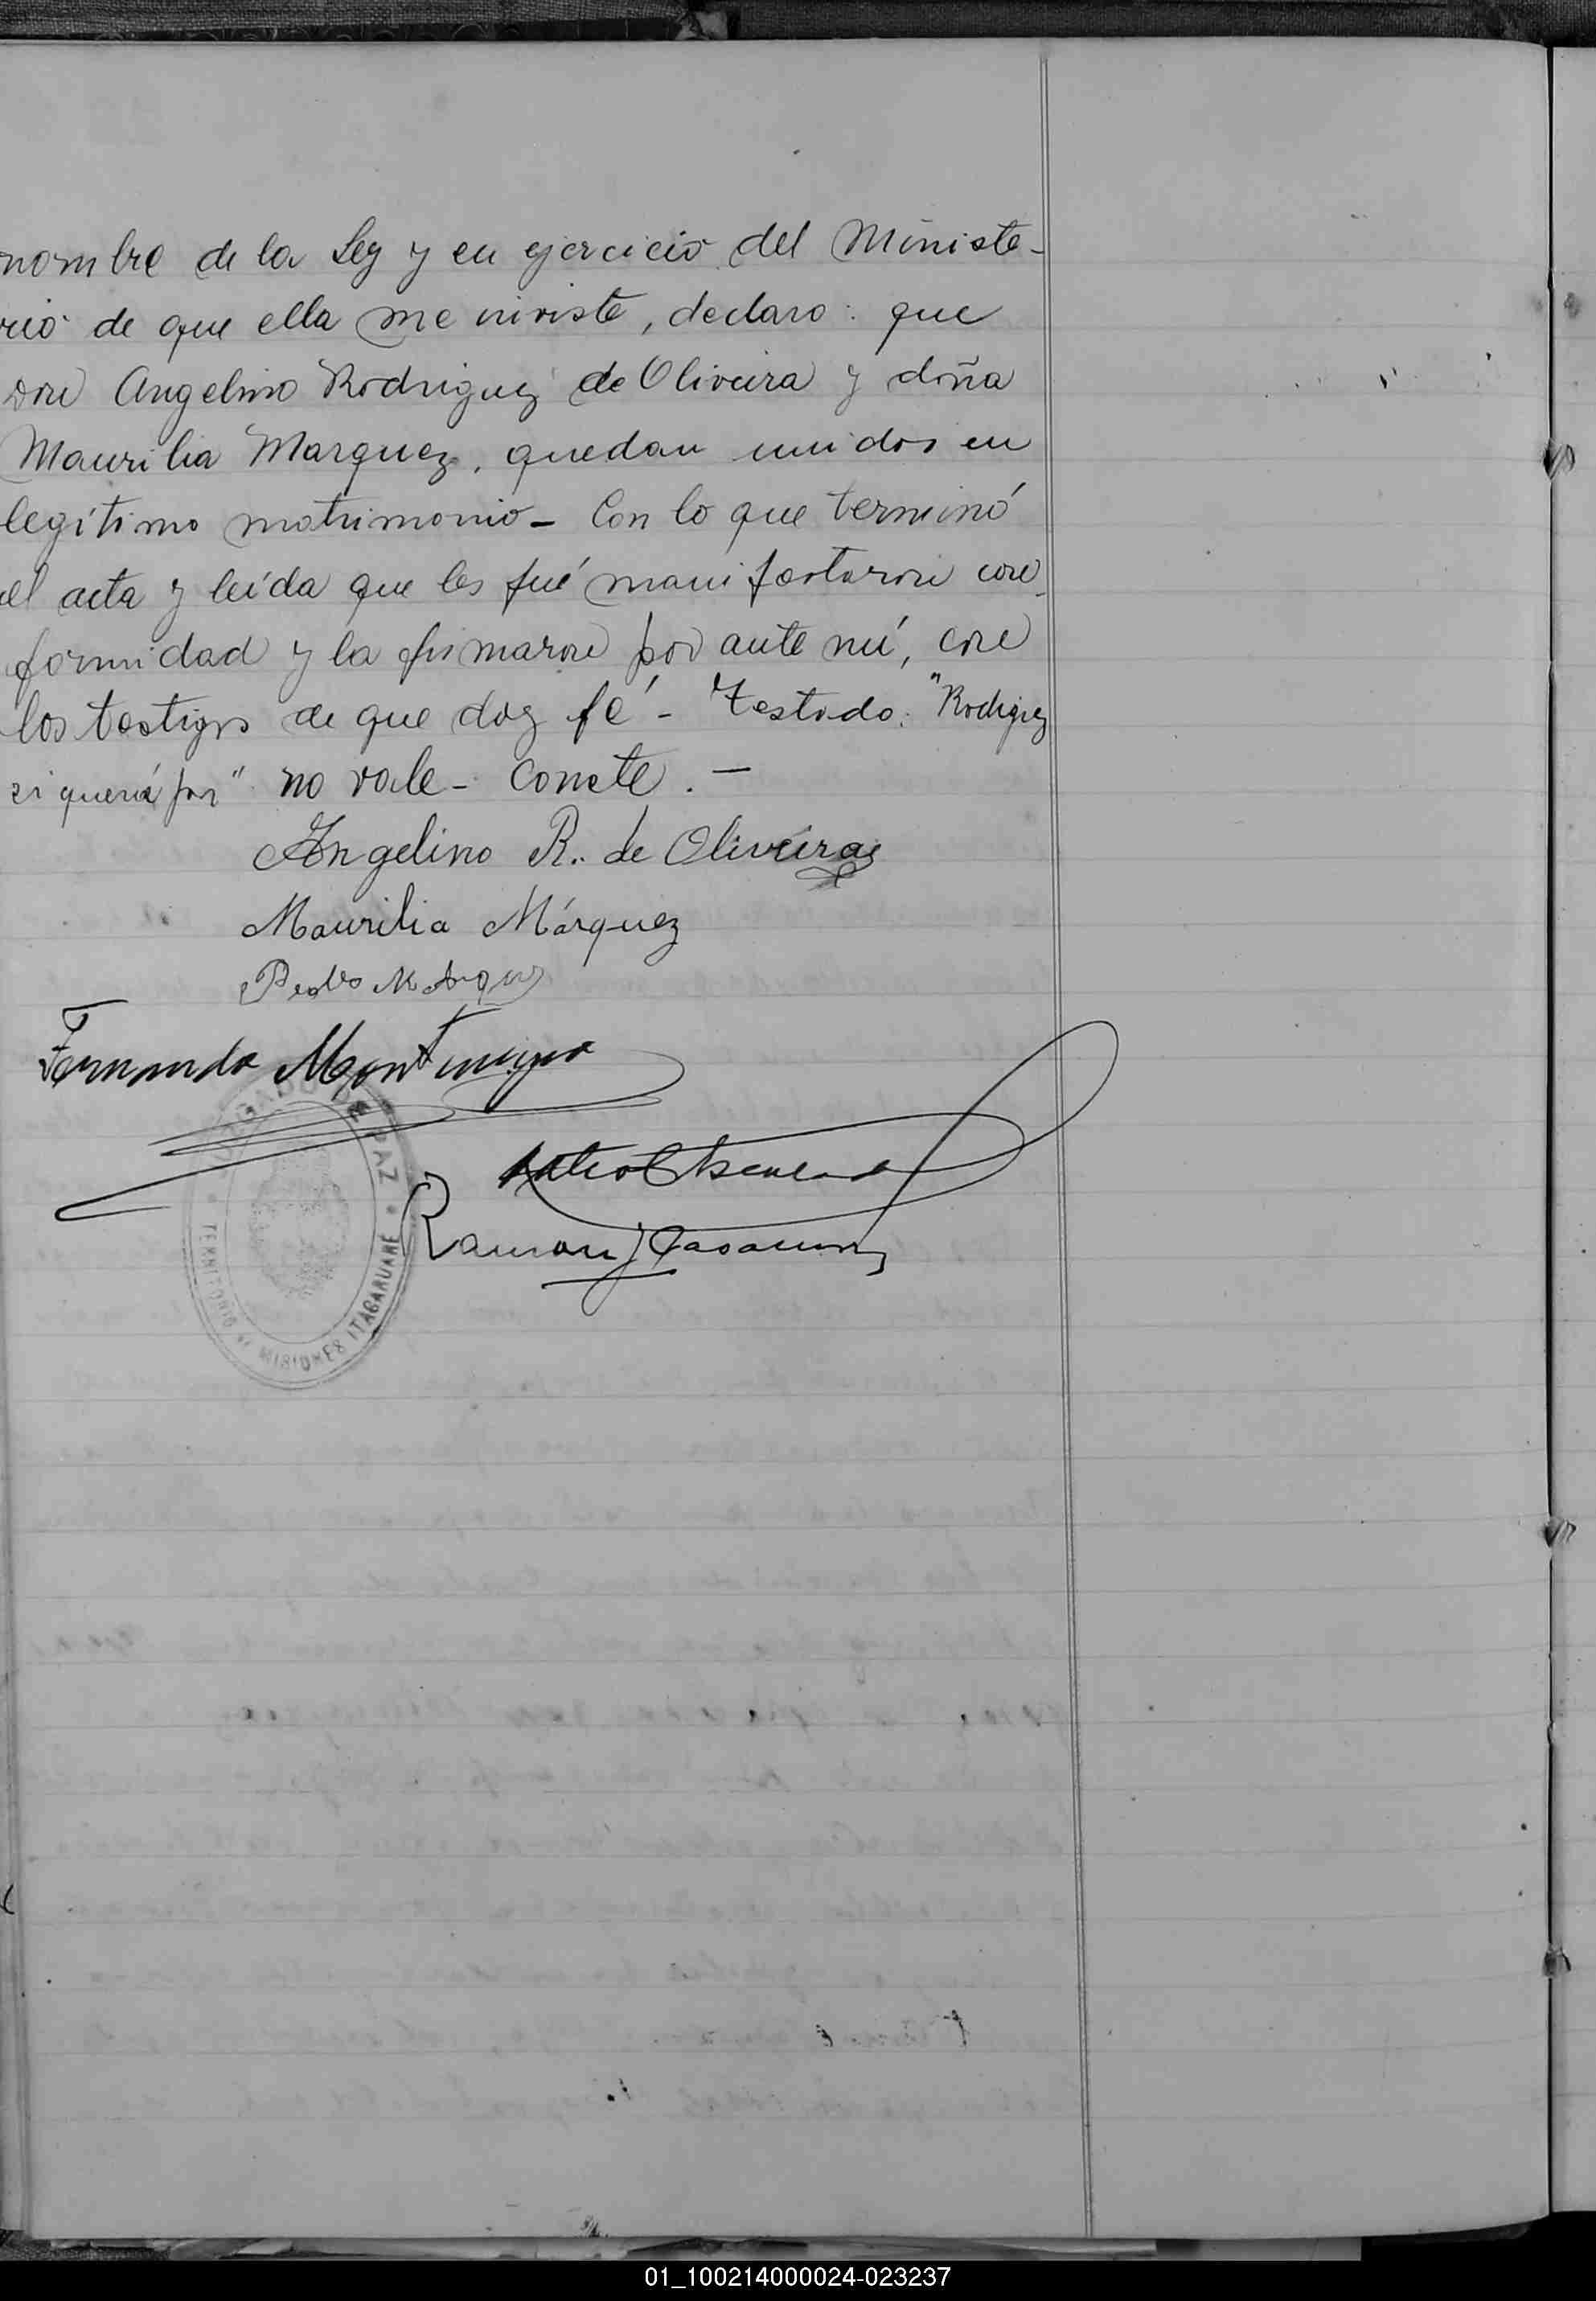 nombre de la Ley y en ejercicio del Ministe-
rio de que ella me inviste, declaro: que
Don Angelino Rodriguez de Oliveira y doña
Maurilia Marquez, quedan unidos en
legítimo matrimonio - Con lo que terminó
el acta y leída que les fué manifestaron con-
formidad y la firmaron por ante mí, con
los testigos de que doy fé - Testado: "Rodriguez
si queria por" no vale - Conste. -
Angelino R. de Oliveira
Maurilia Márquez
Pedro Marquez
Fernando
Ramon J
JUZGADO DE PAZ
TERRITORIO DE MISIONES ITACARUARE
01_100214000024-023237